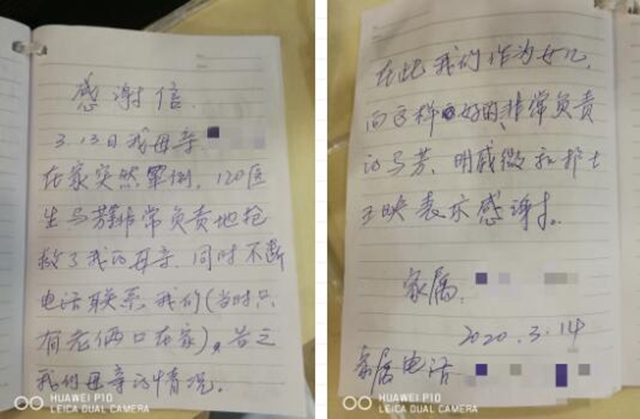 感谢信.
3.13日我母亲
在家突然晕倒。120医
生马芳非常负责地抢
救了我的母亲.同时不断
电话联系我们(当时只
有老俩口在家)。告之
我们母亲的情况。
HUAWEI P10
LEICA DUAL CAMERA
在此我们作为女儿.
向这样好的、非常负责
的马芳、明威微和护士
王映表示感谢。
家属.
2020.3.14
家属电话
HUAWEI P10
LEICA DUAL CAMERA